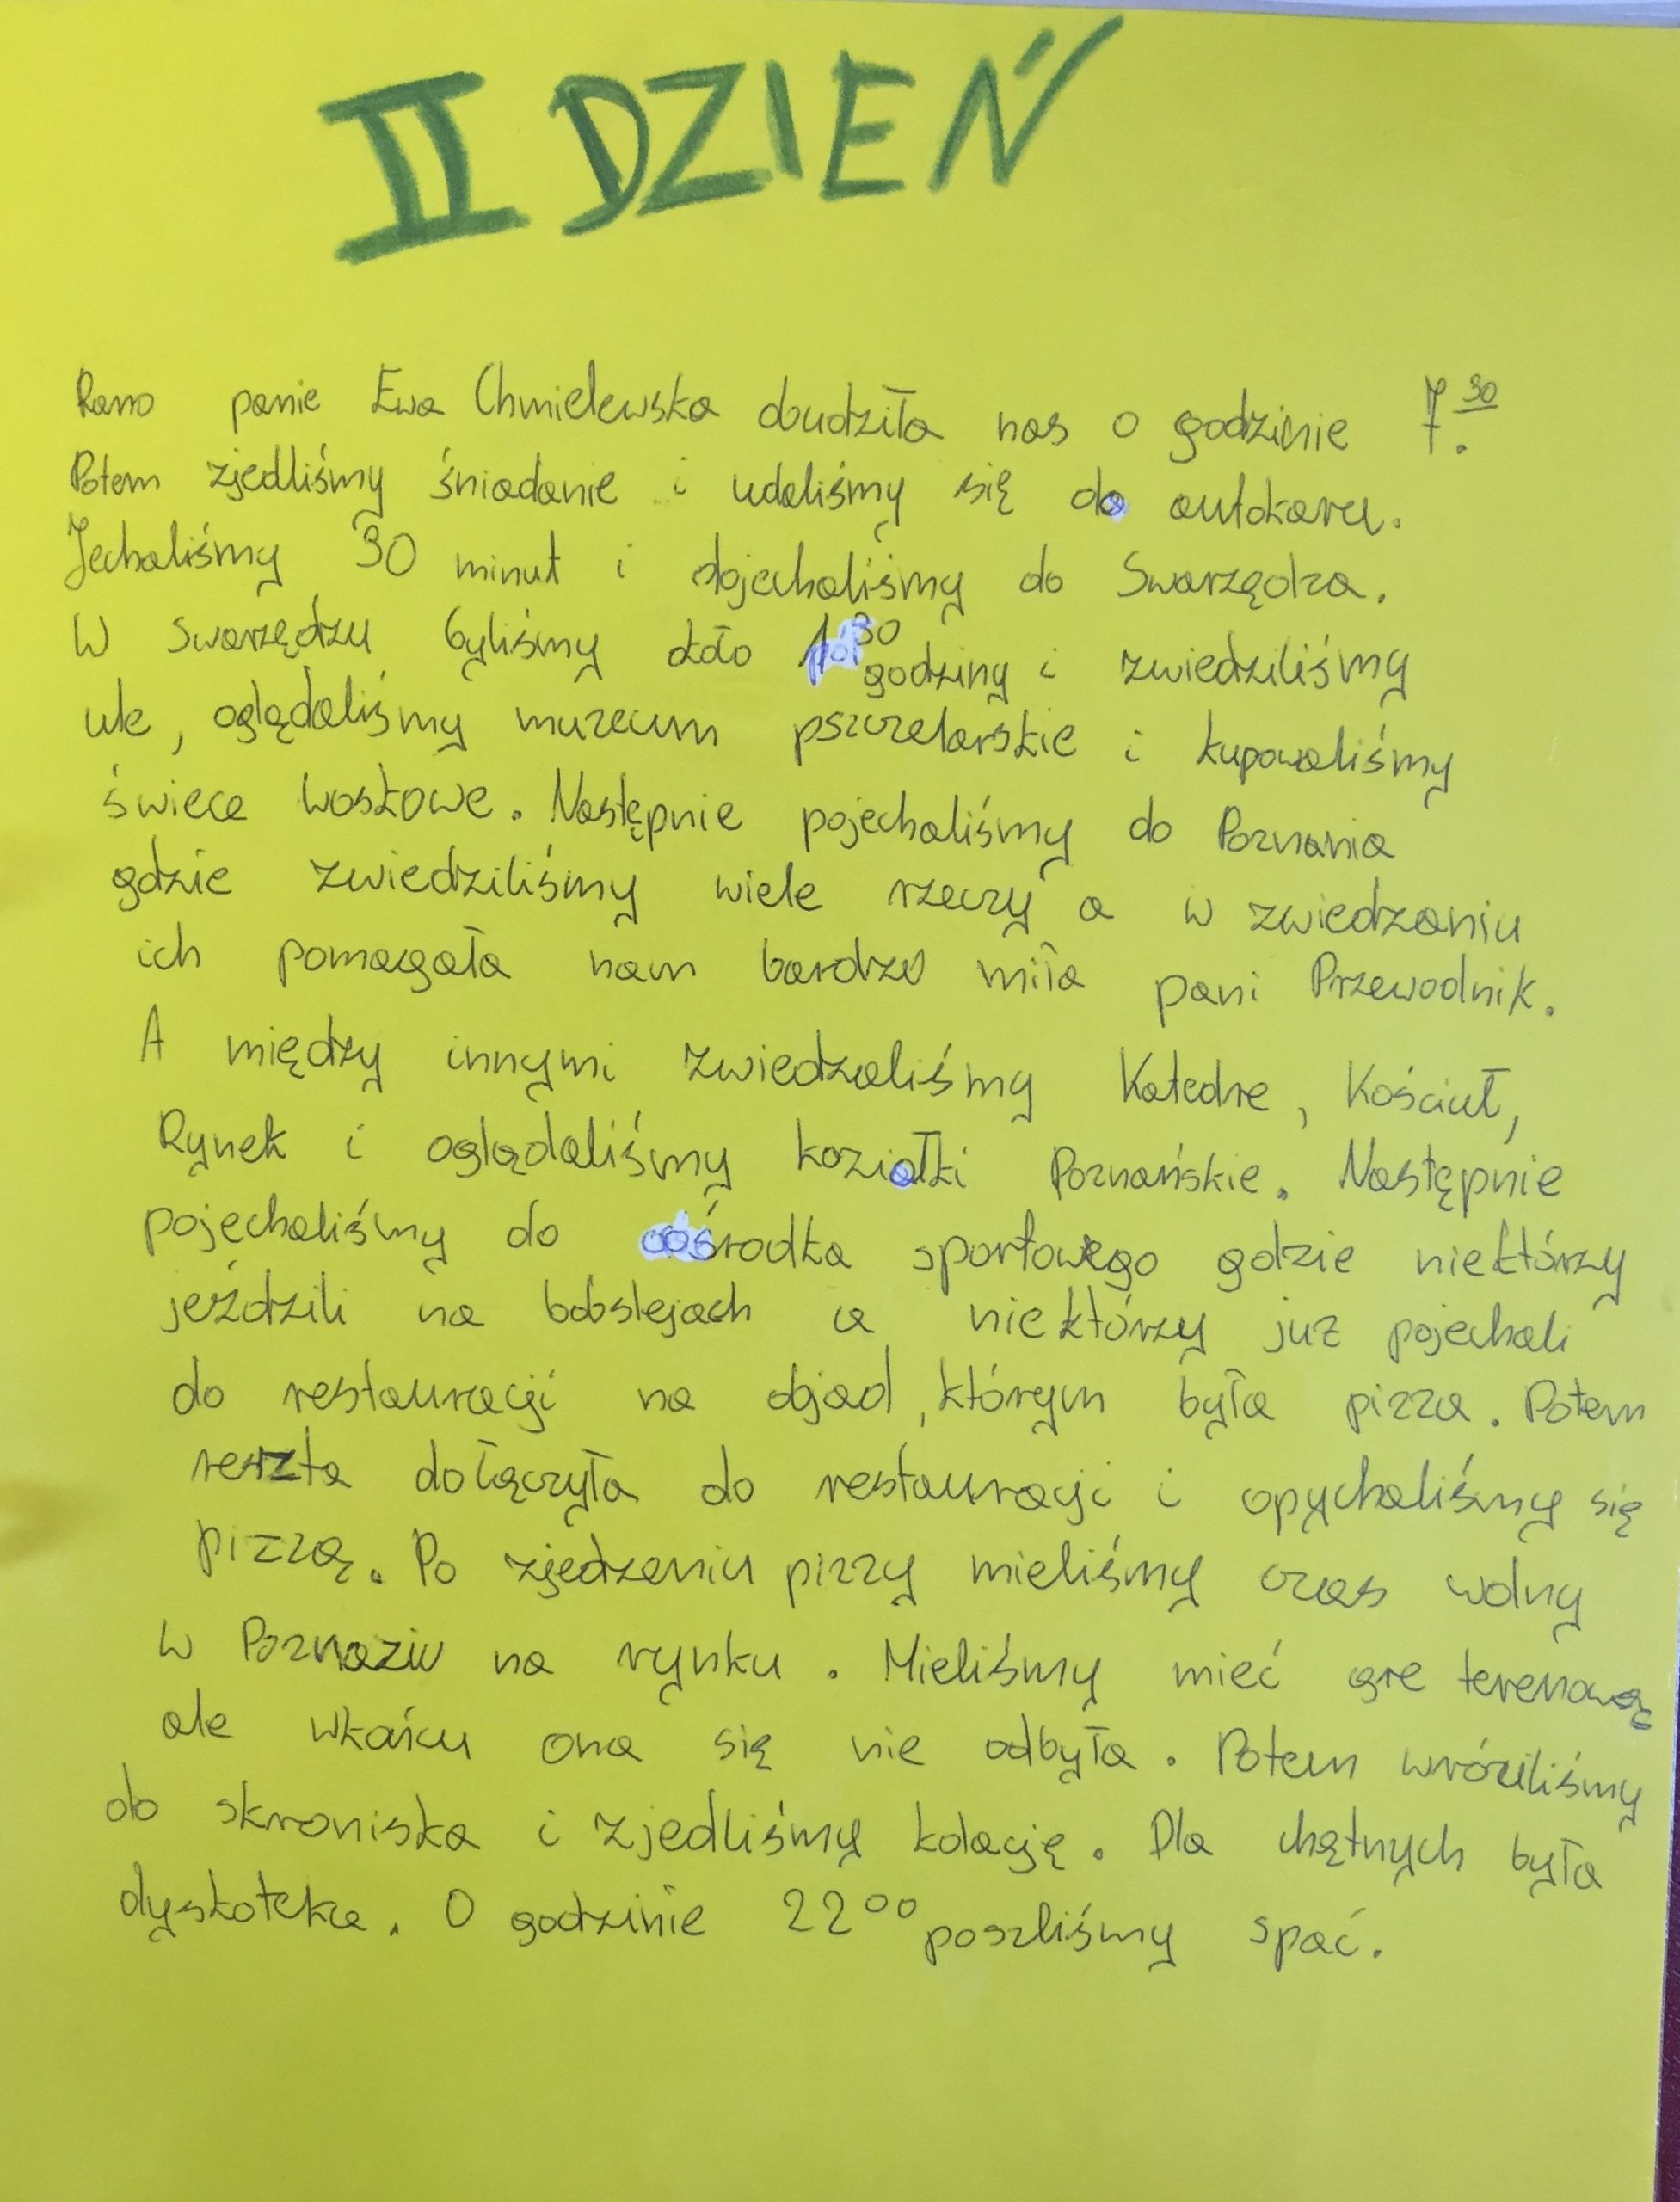 II DZIEŃ
Rano panie Ewa Chmielewska obudziła nas o godzinie 7.30
Potem zjedliśmy śniadanie i udaliśmy się do autokaru.
Jechaliśmy 30 minut i dojechaliśmy do Swarzędza.
W Swarzędzu byliśmy około 1 30 godziny i zwiedziliśmy
ule, oglądaliśmy muzeum pszczelarskie i kupowaliśmy
świece woskowe. Następnie pojechaliśmy do Poznania
gdzie zwiedziliśmy wiele rzeczy a w zwiedzaniu
ich pomagała nam bardzo miła pani Przewodnik.
A między innymi zwiedzaliśmy Katedre, Kościuł,
Rynek i oglądaliśmy koziałki Poznańskie. Następnie
pojechaliśmy do ośrodka sportowego gdzie niektórzy
jeździli na bobslejach a niektórzy juz pojechali
do restauracji na objad, którym była pizza. Potem
reszta dołączyła do restauracji i opychaliśmy się
pizzą. Po zjedzeniu pizzy mieliśmy czas wolny
w Poznaziu na rynku. Mieliśmy mieć gre terenową
ale wkońcu ona się nie odbyła. Potem wróciliśmy
do skroniska i zjedliśmy kolację. Dla chętnych była
dyskoteka. O godzinie 22 00 poszliśmy spać.